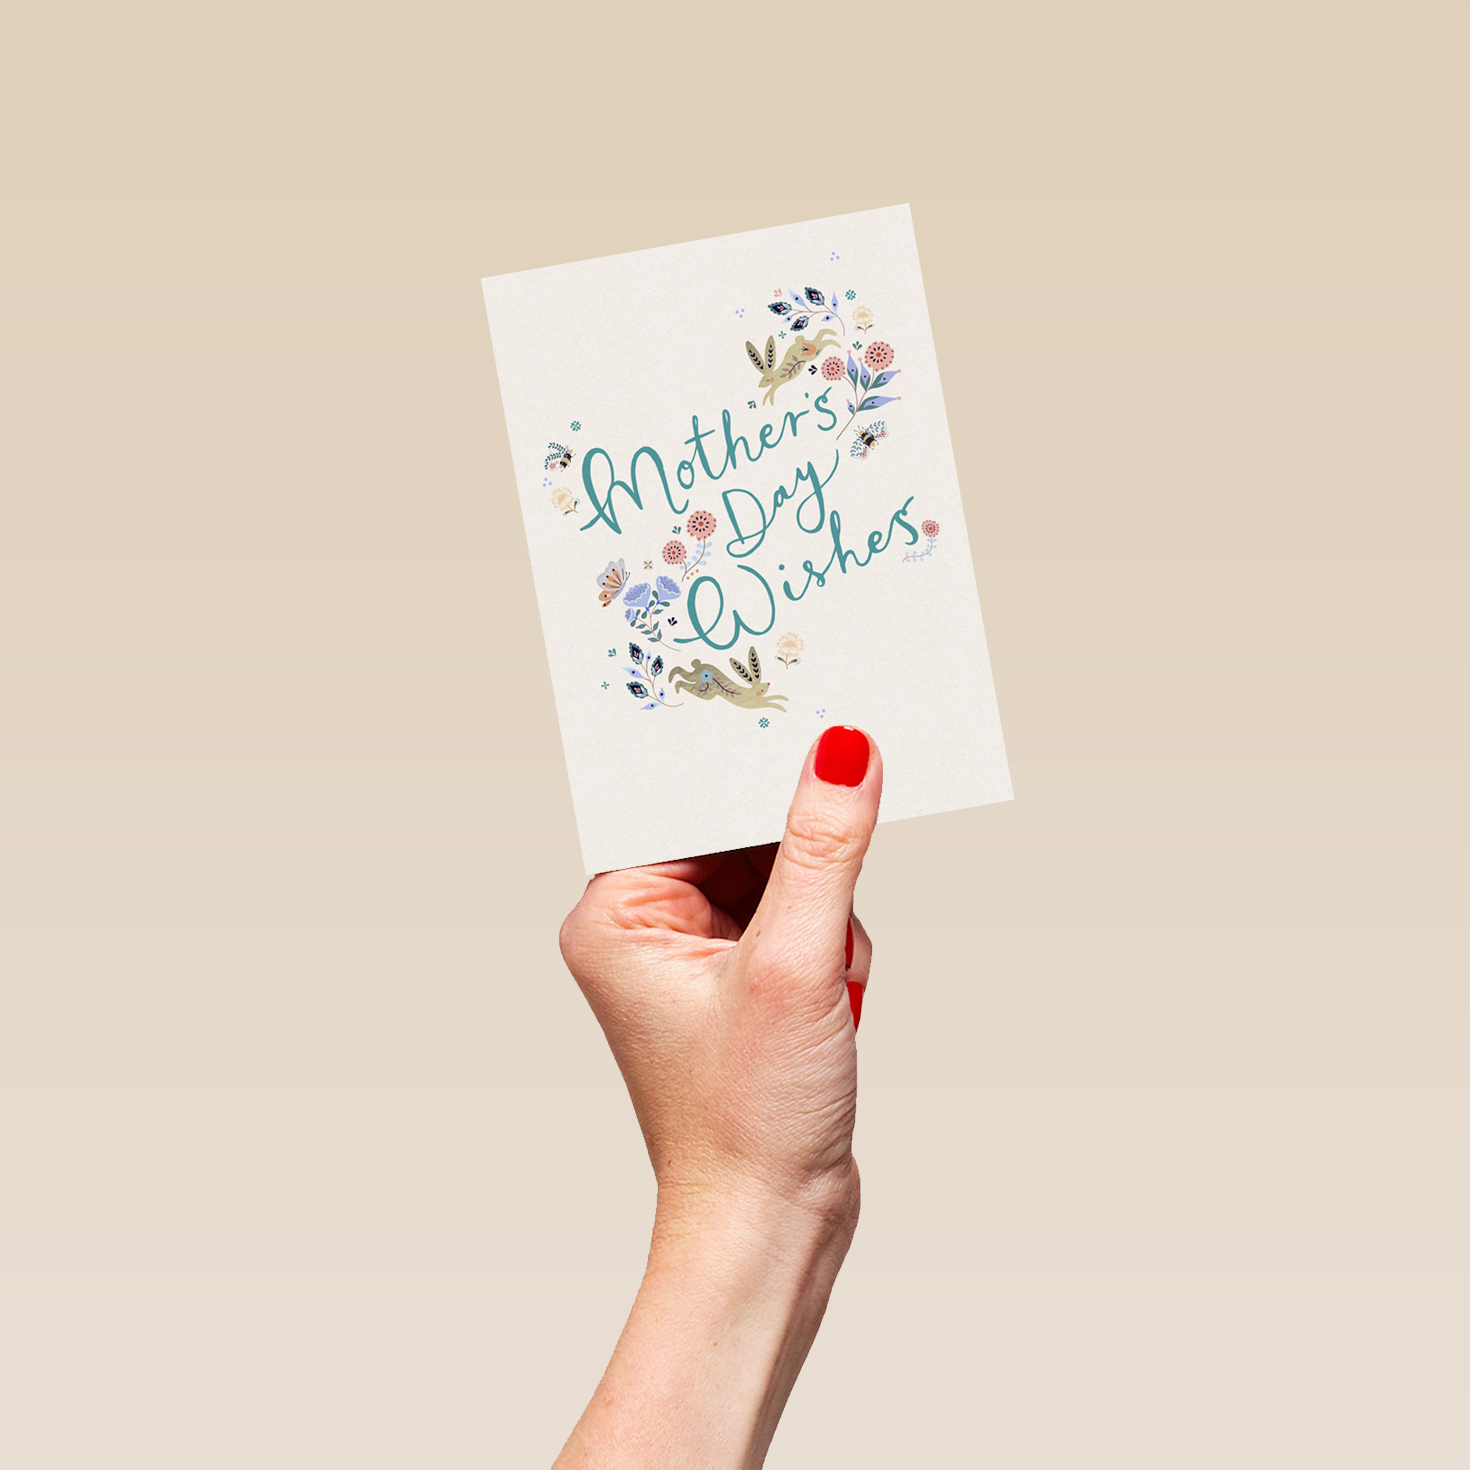 Mother's
Day
Wishes